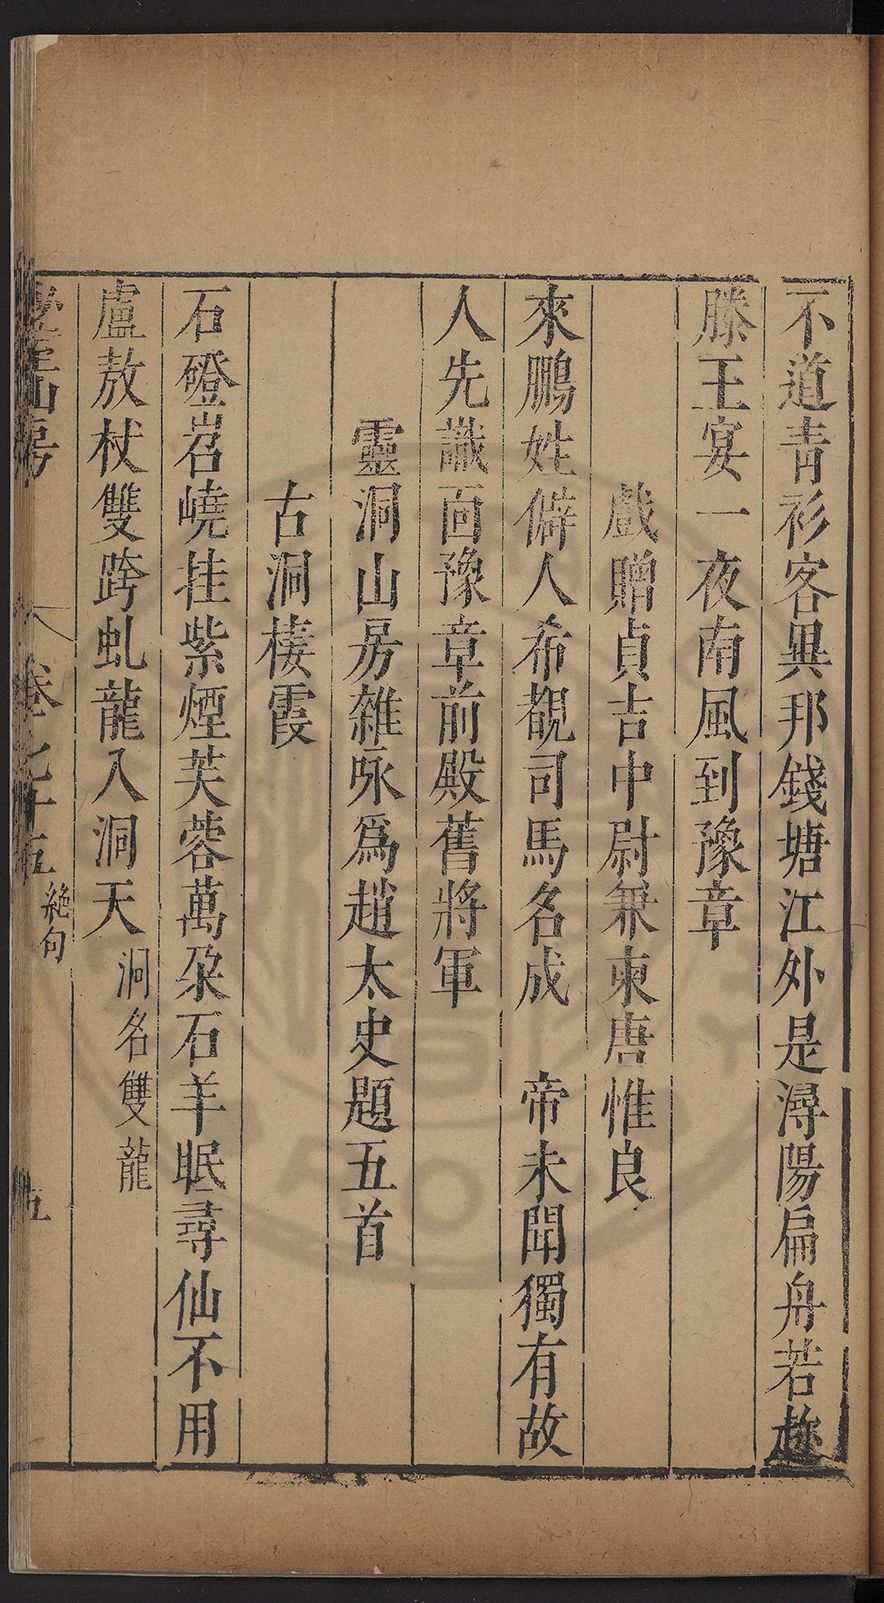 不道青衫客異邦錢塘江外是潯陽扁舟若趂
滕王宴一夜南風到豫章
戲贈貞吉中尉兼柬唐惟良
來鵬姓僻人希覩司馬名成　帝未聞獨有故
人先識面豫章前殿舊將軍
靈洞山房雜咏爲趙太史題五首
古洞棲霞
石磴岧嶢挂紫煙芙蓉萬朶石羊眠尋仙不用
盧敖杖雙跨虬龍入洞天洞名雙龍
山房　卷之　十五絶句　五